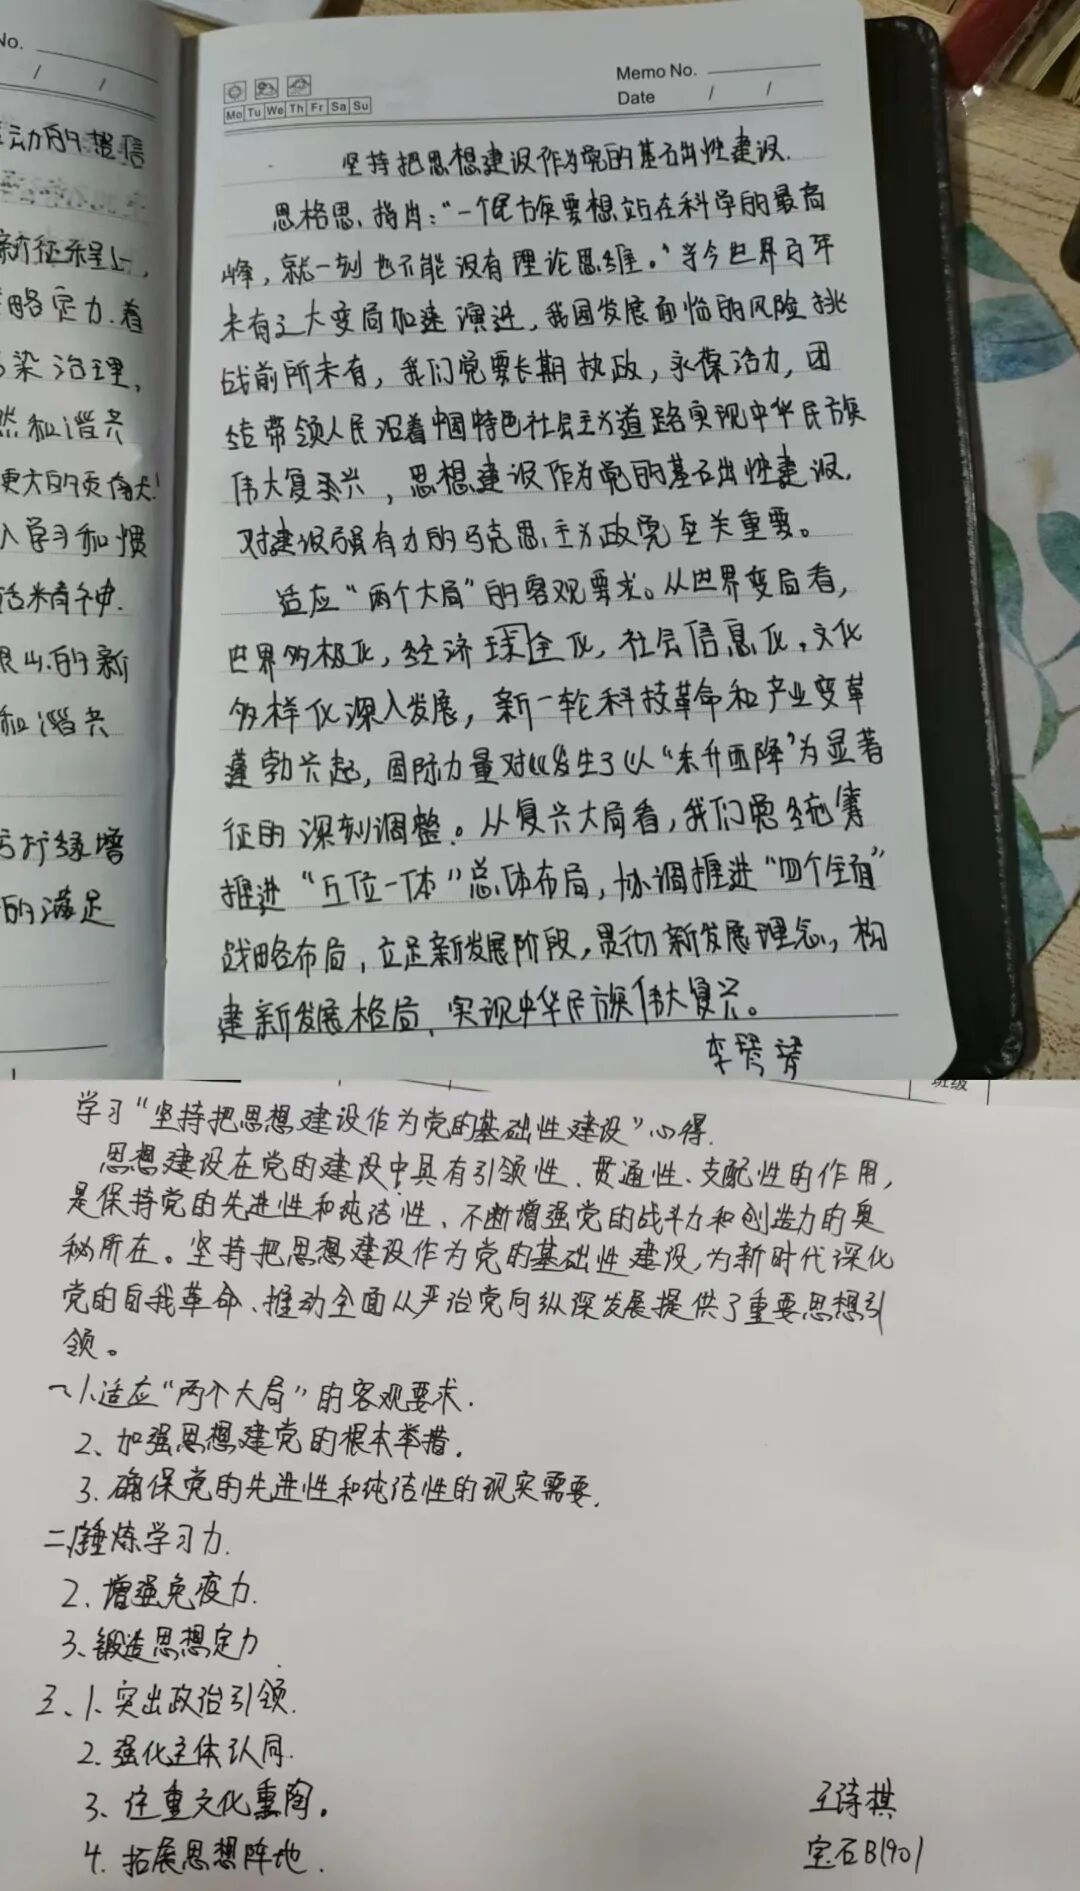 No.
/ /
运动的想信
新征程上，
略定力.着
染治理，
然和谐共
更大的贡献！
入学习和惯
话精神.
绿山.的新
和谐共
扩绿增
的满足
Memo No.
Mo Tu We Th Fr Sa Su
Date / /
坚持把思想建设作为党的基石出性建设.
恩格思.指出：“一个民族要想站在科学的最高
峰，就一刻也不能没有理论思维。”当今世界百年
未有之大变局加速演进，我国发展面临的风险挑
战前所未有，我们党要长期执政，永葆活力，团
结带领人民沿着中国特色社会主义道路实现中华民族
伟大复兴，思想建设作为党的基石出性建设.
对建设强有力的马克思主义政党至关重要。
适应“两个大局”的客观要求。从世界变局看，
世界多极化，经济球全化，社会信息化，文化
多样化深入发展，新一轮科技革命和产业变革
蓬勃兴起，国际力量对比发生了以“东升西降”为显著
征的深刻调整。从复兴大局看，我们党统筹
推进“五位一体”总体布局，协调推进“四个全面”
战略布局，立足新发展阶段，贯彻新发展理念，构
建新发展格局，实现中华民族伟大复兴。
班级
学习“坚持把思想建设作为党的基础性建设”心得.
思想建设在党的建设中具有引领性、贯通性、支配性的作用，
是保持党的先进性和纯洁性、不断增强党的战斗力和创造力的奥
秘所在。坚持把思想建设作为党的基础性建设，为新时代深化
党的自我革命、推动全面从严治党向纵深发展提供了重要思想引
领。
一、1.适应“两个大局”的客观要求.
2、加强思想建党的根本举措.
3.确保党的先进性和纯洁性的现实需要.
二、锤炼学习力.
2.增强免疫力.
3、锻造思想定力
三、1、突出政治引领.
2.强化主体认同.
3、注重文化熏陶。
4.拓展思想阵地.
王诗棋
宝石B1901